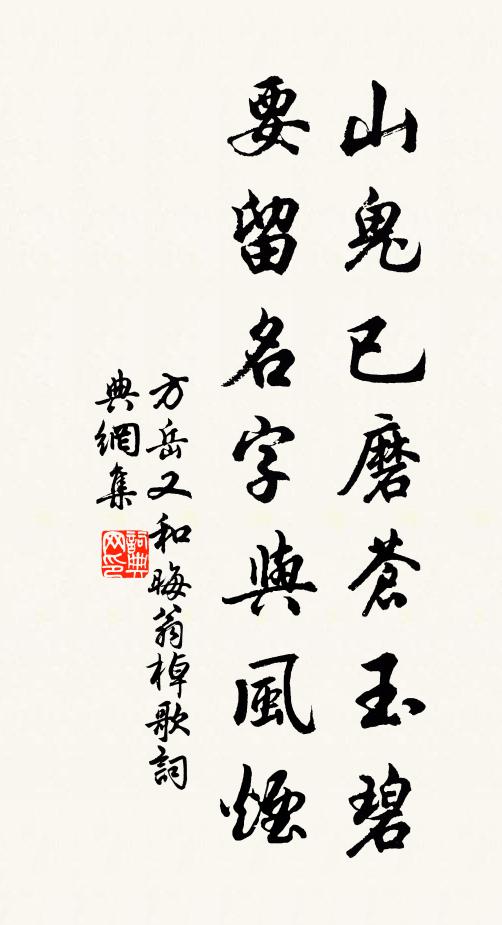 山鬼已磨蒼玉碧
要留名字與風煙
方岳又和晦翁棹歌詞
典網集
詞典网印